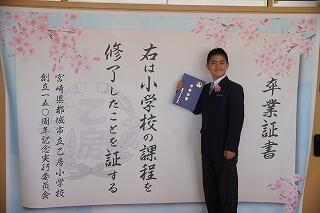 卒業証書
右は小学校の課程を
修了したことを証する
宮崎県都城市立乙房小学校
創立一五〇周年記念実行委員会
乙房